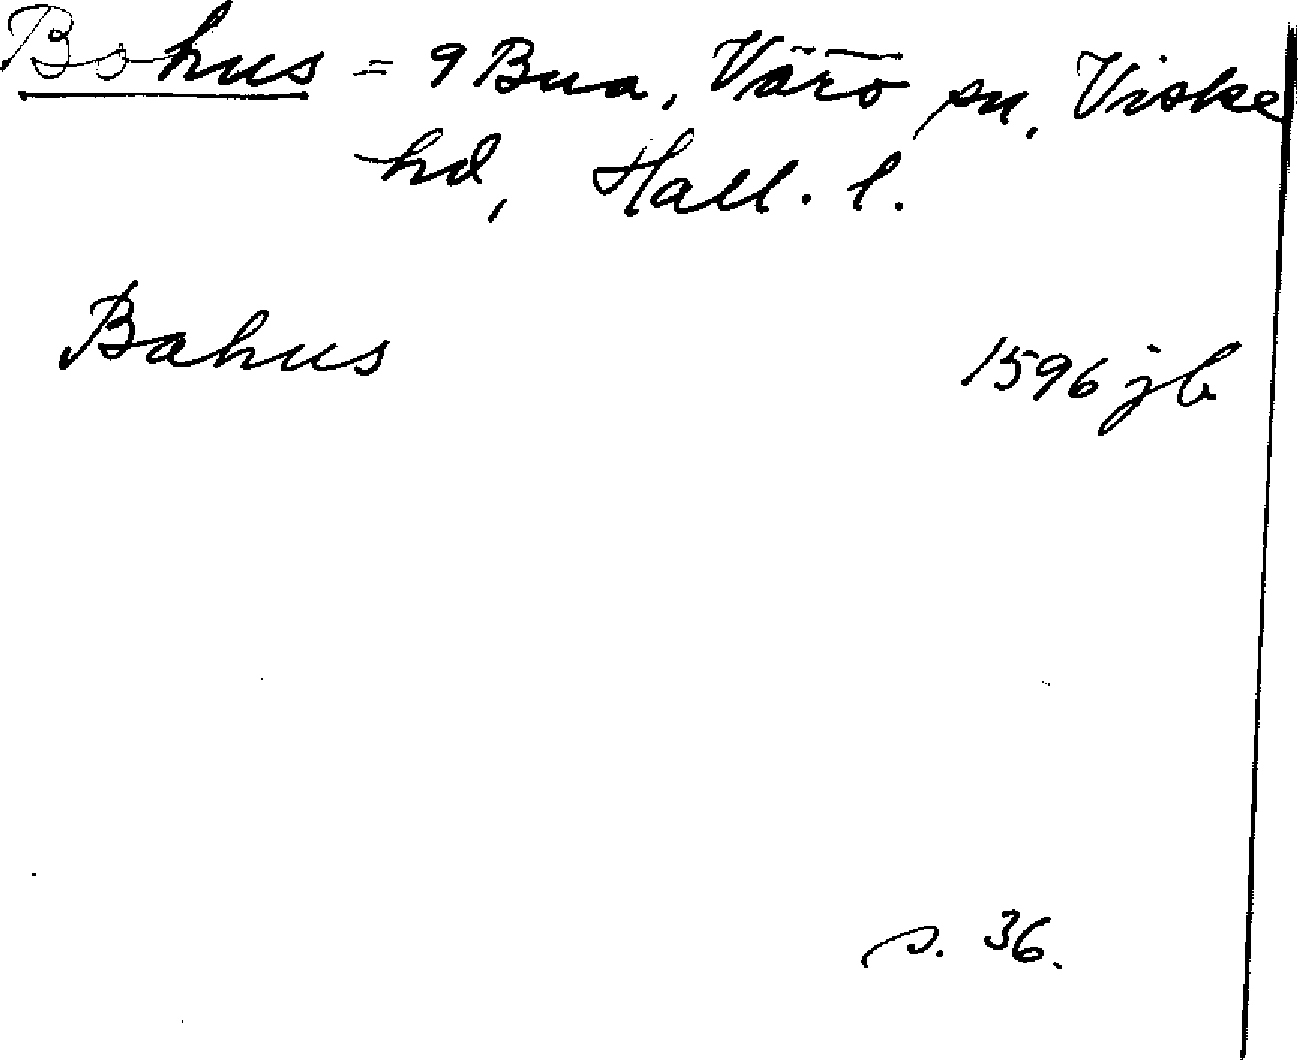 Bohus = 9 Bua, Värö sn, Viske
hd, Hall. l.
Bahus 1596 jb
s. 36.